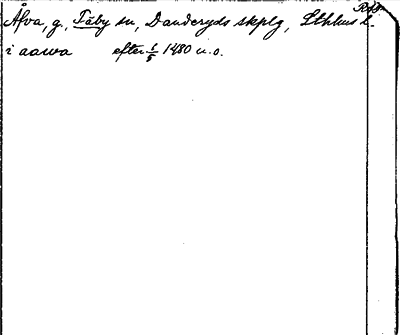 Åfva, g., Täby sn, Danderyds skplg, Sthlms l.
i aawa efter 1/5 1480 u.o.